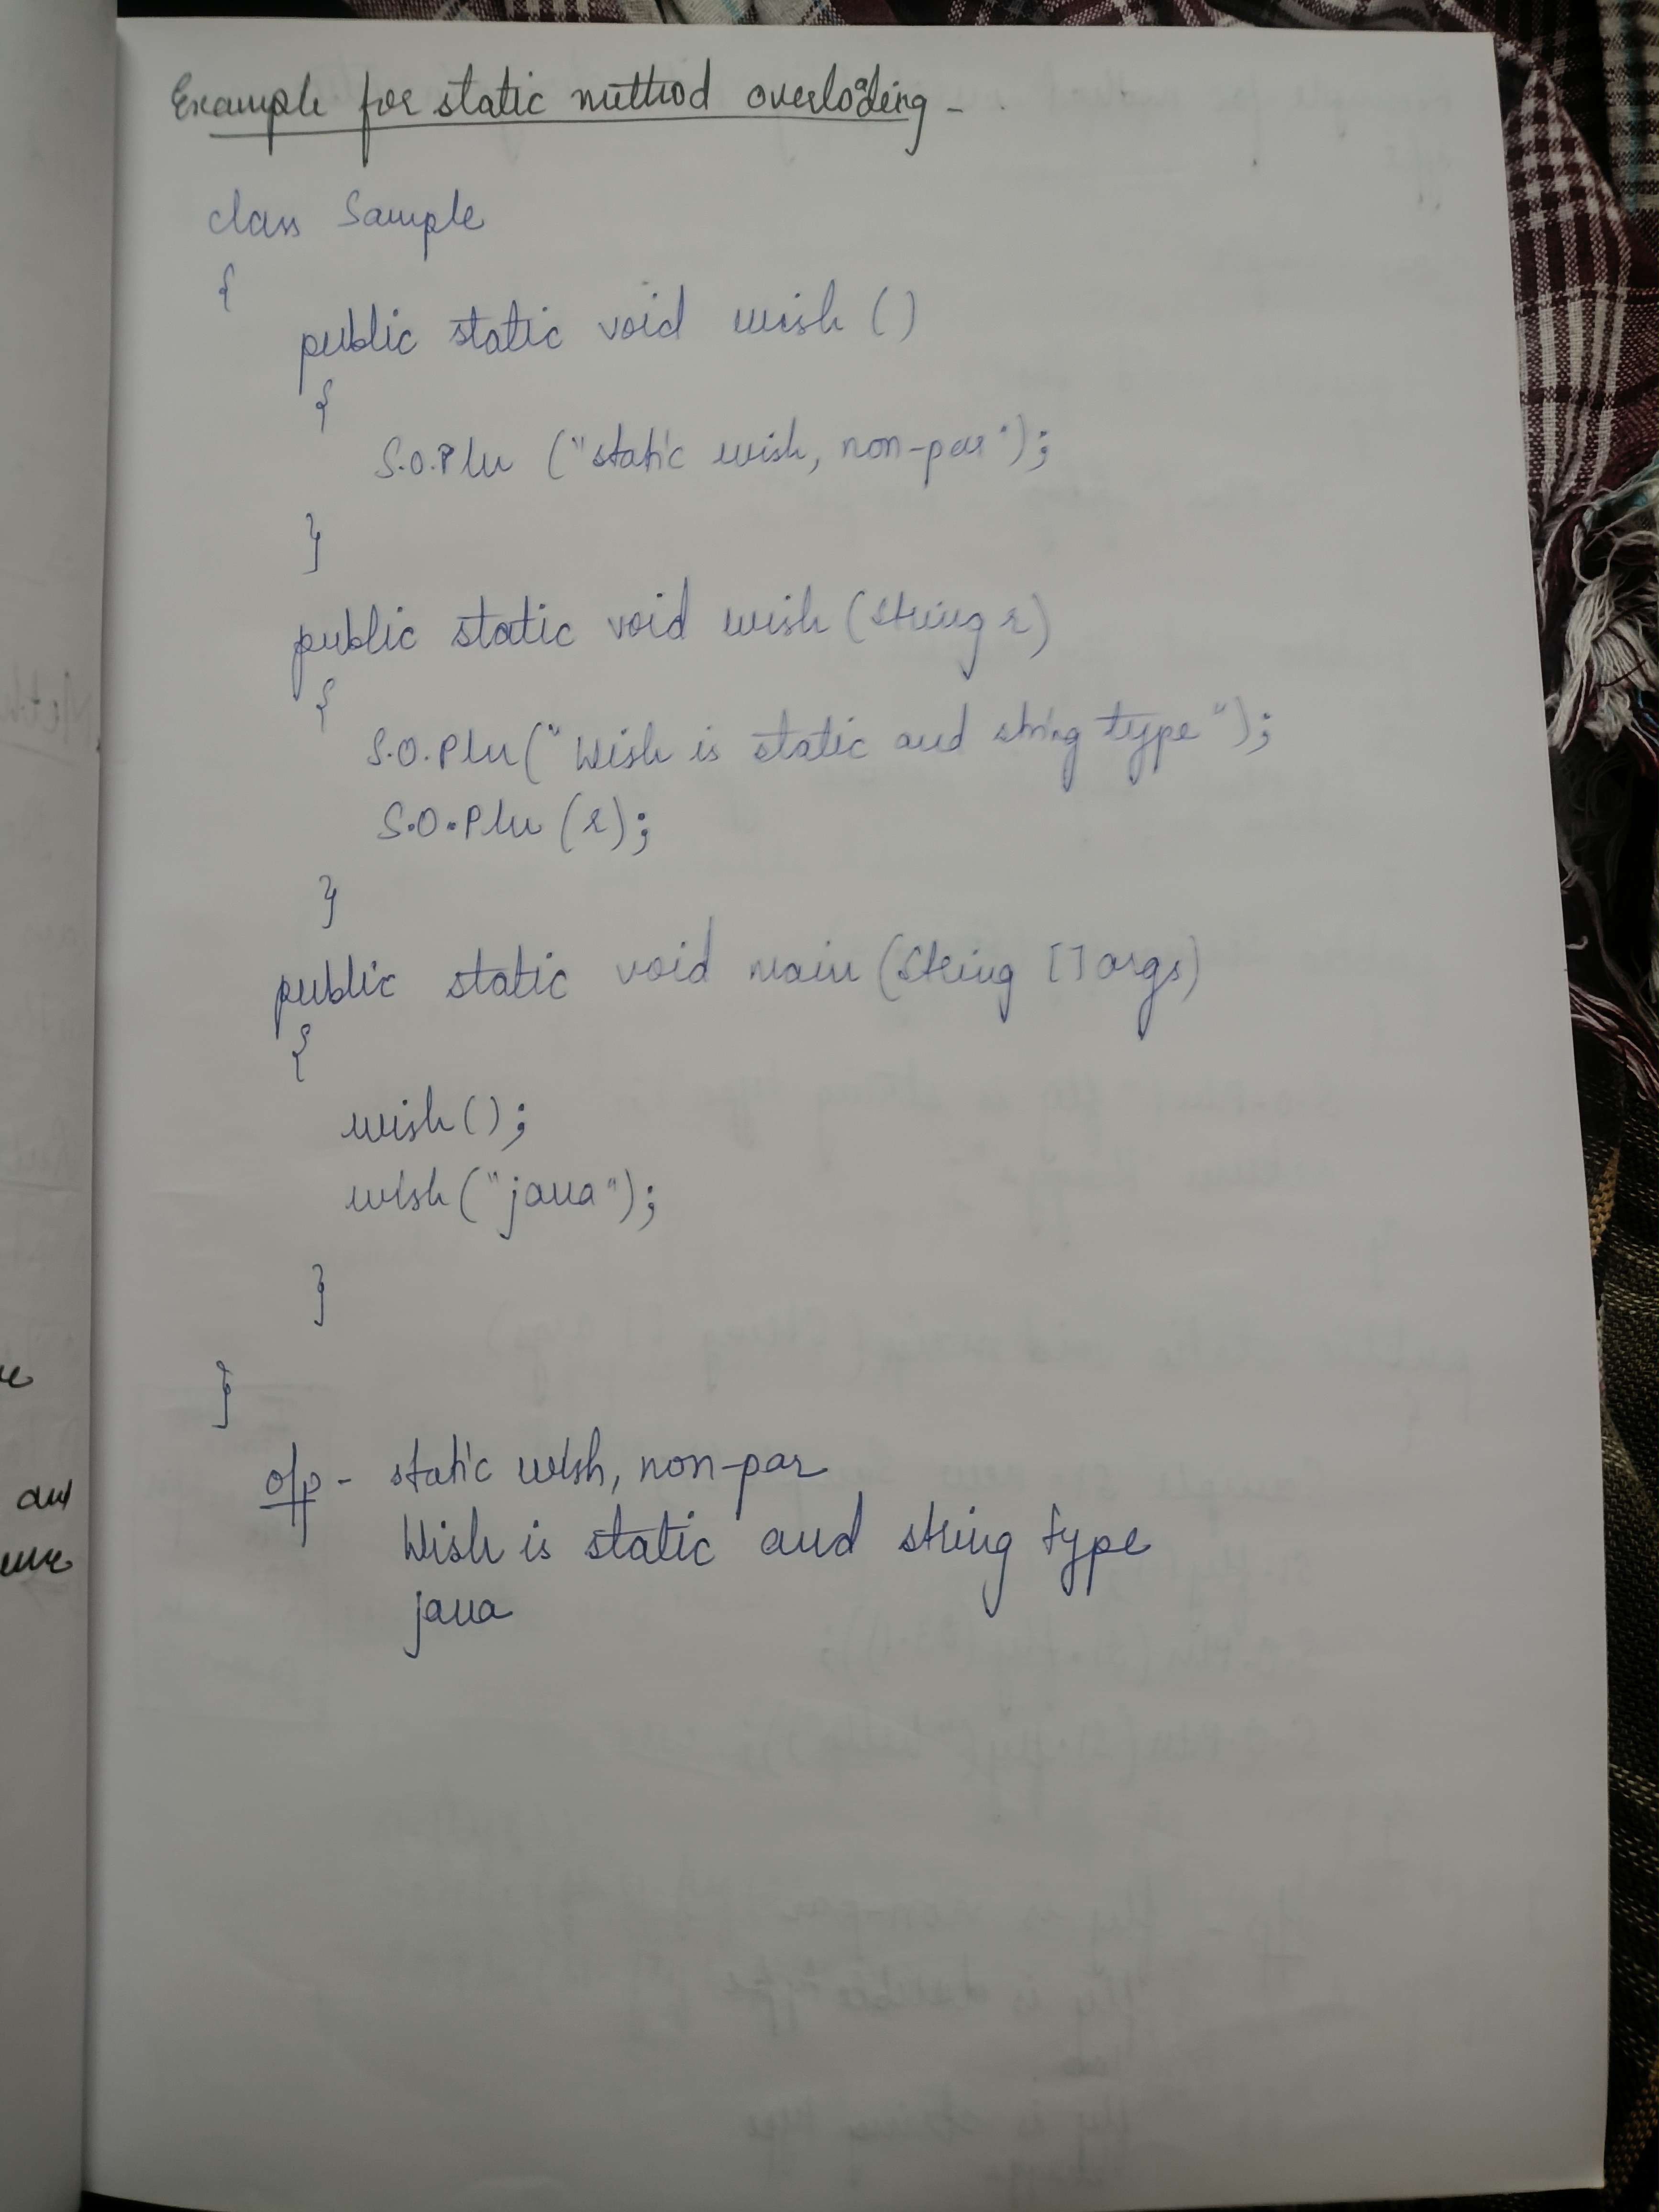 Example for static method overloading -
class Sample
{
public static void wish ()
{
S.O.Pln ("static wish, non-par");
}
public static void wish (String r)
{
S.O.Pln ("Wish is static and string type");
S.O.Pln (r);
}
public static void main (String [] args)
{
wish ();
wish ("java");
}
}
o/p - static wish, non-par
Wish is static and string type
java